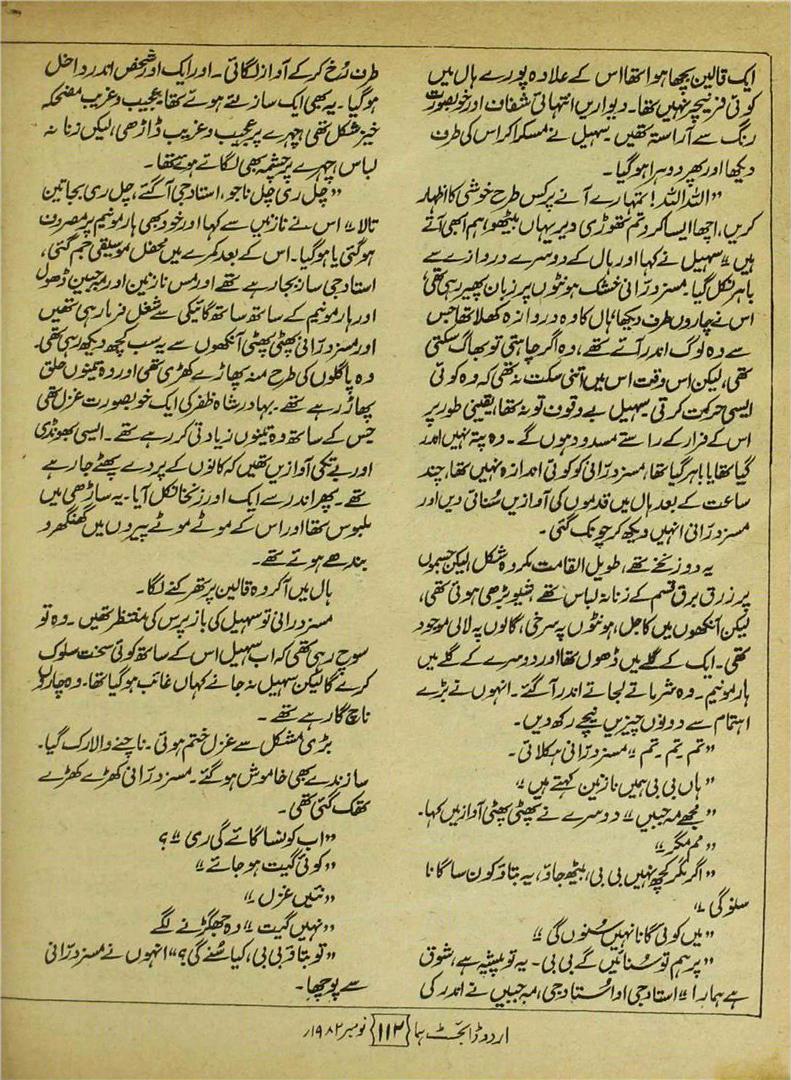 ایک قالین بچھا ہوا تھا اس کے علاوہ پورے ہال میں
کوئی فرنیچر نہیں تھا۔ دیواریں انتہائی شفاف اور خوبصورت
رنگ سے آراستہ تھیں۔ سہیل نے مسکرا کر اس کی طرف
دیکھا اور پھر دوہرا ہوگیا۔
"اللہ اللہ! تمہارے آنے پر کس طرح خوشی کا اظہار
کریں، اچھا ایسا کرو تم تھوڑی دیر یہاں بیٹھو، ہم ابھی آتے
ہیں" سہیل نے کہا اور ہال کے دوسرے دروازے سے
باہر نکل گیا۔ مسز درانی خشک ہونٹوں پر زبان پھیر رہی تھی،
اس نے چاروں طرف دیکھا، ہال کا وہ دروازہ کھلا تھا جس
سے وہ لوگ اندر آئے تھے، وہ اگر چاہتی تو بھاگ سکتی
تھی، لیکن اس وقت اس میں اتنی سکت نہ تھی کہ وہ کوئی
ایسی حرکت کرتی۔ سہیل بے وقوف تو نہ تھا، یقینی طور پر
اس کے فرار کے راستے مسدود ہوں گے۔ وہ پتہ نہیں اندر
گیا تھا یا باہر گیا تھا، مسز درانی کو کوئی اندازہ نہیں تھا، چند
ساعت کے بعد ہال میں قدموں کی آوازیں سنائی دیں اور
مسز درانی انہیں دیکھ کر چونک گئی۔
یہ دو زنخے تھے، طویل القامت مکروہ شکل لیکن جسموں
پر زرق برق قسم کے زنانہ لباس تھے شیو بڑھی ہوئی تھی،
لیکن آنکھوں میں کاجل، ہونٹوں پہ سرخی، گالوں پہ لالی موجود
تھی۔ ایک کے گلے میں ڈھول تھا اور دوسرے کے گلے میں
ہارمونیم۔ وہ شرماتے لجاتے اندر آگئے۔ انہوں نے بڑے
اہتمام سے دونوں چیزیں نیچے رکھ دیں۔
"تم۔ تم۔ تم" مسز درانی ہکلائی۔
"ہاں بی بی ہمیں نازنین کہتے ہیں"
"مجھے مہ جبیں" دوسرے نے پھٹی پھٹی آواز میں کہا۔
"مم مگر"
"اگر مگر کچھ نہیں بی بی، بیٹھ جاؤ، یہ بتاؤ کون سا گانا
سنو گی"
"میں کوئی گانا نہیں سنوں گی"
"پر ہم تو سنائیں گے بی بی۔ یہ تو پیشہ ہے، شوق
ہے ہمارا" استاد جی او استاد جی، مہ جبیں نے اندر کی
طرف رخ کر کے آواز لگائی۔ اور ایک اور شخص اندر داخل
ہوگیا۔ یہ بھی ایک ساز لئے ہوئے تھا، عجیب و غریب مضحکہ
خیز شکل تھی، چہرے پر عجیب و غریب ڈاڑھی، لیکن زنانہ
لباس، چہرے پر چشمہ بھی لگائے ہوئے تھا۔
"چل ری چل ناجو، استاد جی آگئے، چل ری بجا تین
تالا" اس نے نازنیں سے کہا اور خود بھی ہارمونیم پر مصروف
ہوگئی یا ہوگیا۔ اس کے بعد کمرے میں محفل موسیقی جم گئی،
استاد جی ساز بجا رہے تھے اور مس نازنین اور مہ جبین ڈھول
اور ہارمونیم کے ساتھ ساتھ گائیکی سے شغل فرما رہی تھیں
اور مسز درانی پھٹی پھٹی آنکھوں سے یہ سب کچھ دیکھ رہی تھی۔
وہ پاگلوں کی طرح منہ پھاڑے کھڑی تھی اور وہ تینوں حلق
پھاڑ رہے تھے۔ بہادر شاہ ظفر کی ایک خوبصورت غزل تھی
جس کے ساتھ وہ تینوں زیادتی کر رہے تھے۔ ایسی بھونڈی
اور بے تکی آوازیں تھیں کہ کانوں کے پردے پھٹے جا رہے
تھے۔ پھر اندر سے ایک اور زنخا نکل آیا۔ یہ ساڑھی میں
ملبوس تھا اور اس کے موٹے موٹے پیروں میں گھنگھرو
بندھے ہوئے تھے۔
ہال میں آکر وہ قالین پر تھرکنے لگا۔
مسز درانی تو سہیل کی باز پرس کی منتظر تھیں۔ وہ تو
سوچ رہی تھی کہ اب سہیل اس کے ساتھ کوئی سخت سلوک
کرے گا لیکن سہیل نہ جانے کہاں غائب ہوگیا تھا۔ وہ چاروں
ناچ گا رہے تھے۔
بڑی مشکل سے غزل ختم ہوئی۔ ناچنے والا رک گیا۔
سازندے بھی خاموش ہوگئے۔ مسز درانی کھڑے کھڑے
تھک گئی تھی۔
"اب کونسا گائے گی ری"؟
"کوئی گیت ہو جائے"
"نئیں غزل"
"نہیں گیت" وہ جھگڑنے لگے
"تو بتاؤ بی بی، کیا سنے گی؟" انہوں نے مسز درانی
سے پوچھا۔
اردو ڈائجسٹ ہما {۱۱۲} نومبر ۱۹۸۲ء